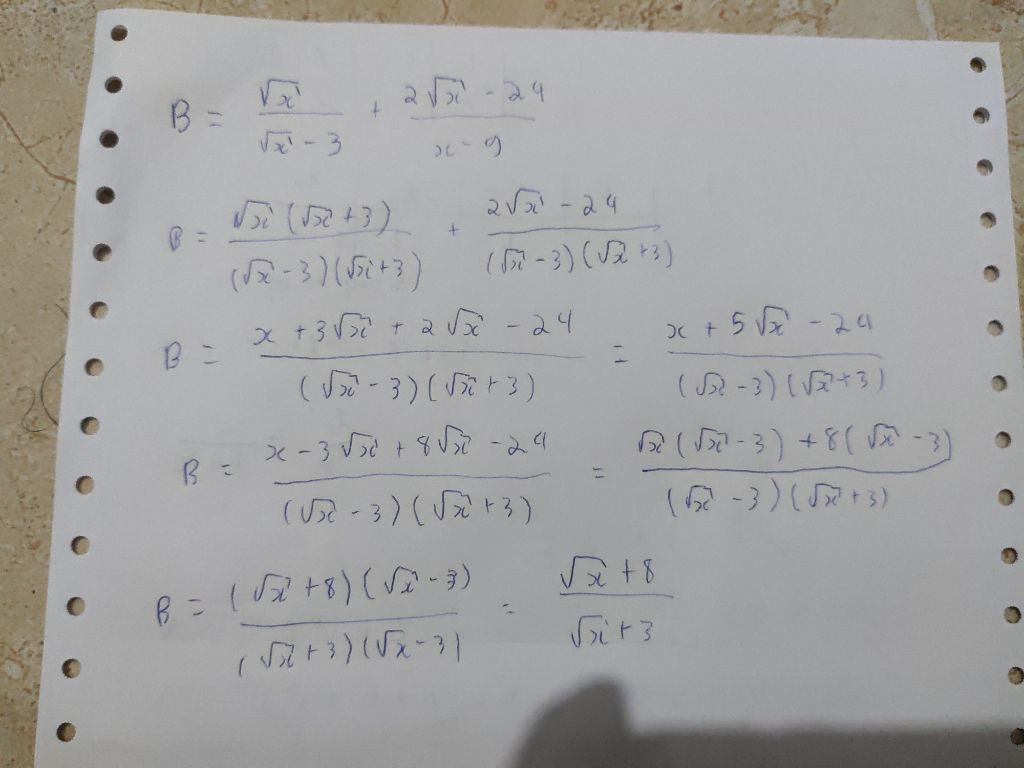 B = √x / (√x - 3) + (2√x - 24) / (x - 9)
B = √x (√x + 3) / (√x - 3)(√x + 3) + (2√x - 24) / (√x - 3)(√x + 3)
B = (x + 3√x + 2√x - 24) / (√x - 3)(√x + 3) = (x + 5√x - 24) / (√x - 3)(√x + 3)
B = (x - 3√x + 8√x - 24) / (√x - 3)(√x + 3) = (√x (√x - 3) + 8(√x - 3)) / (√x - 3)(√x + 3)
B = (√x + 8)(√x - 3) / (√x + 3)(√x - 3) = (√x + 8) / (√x + 3)